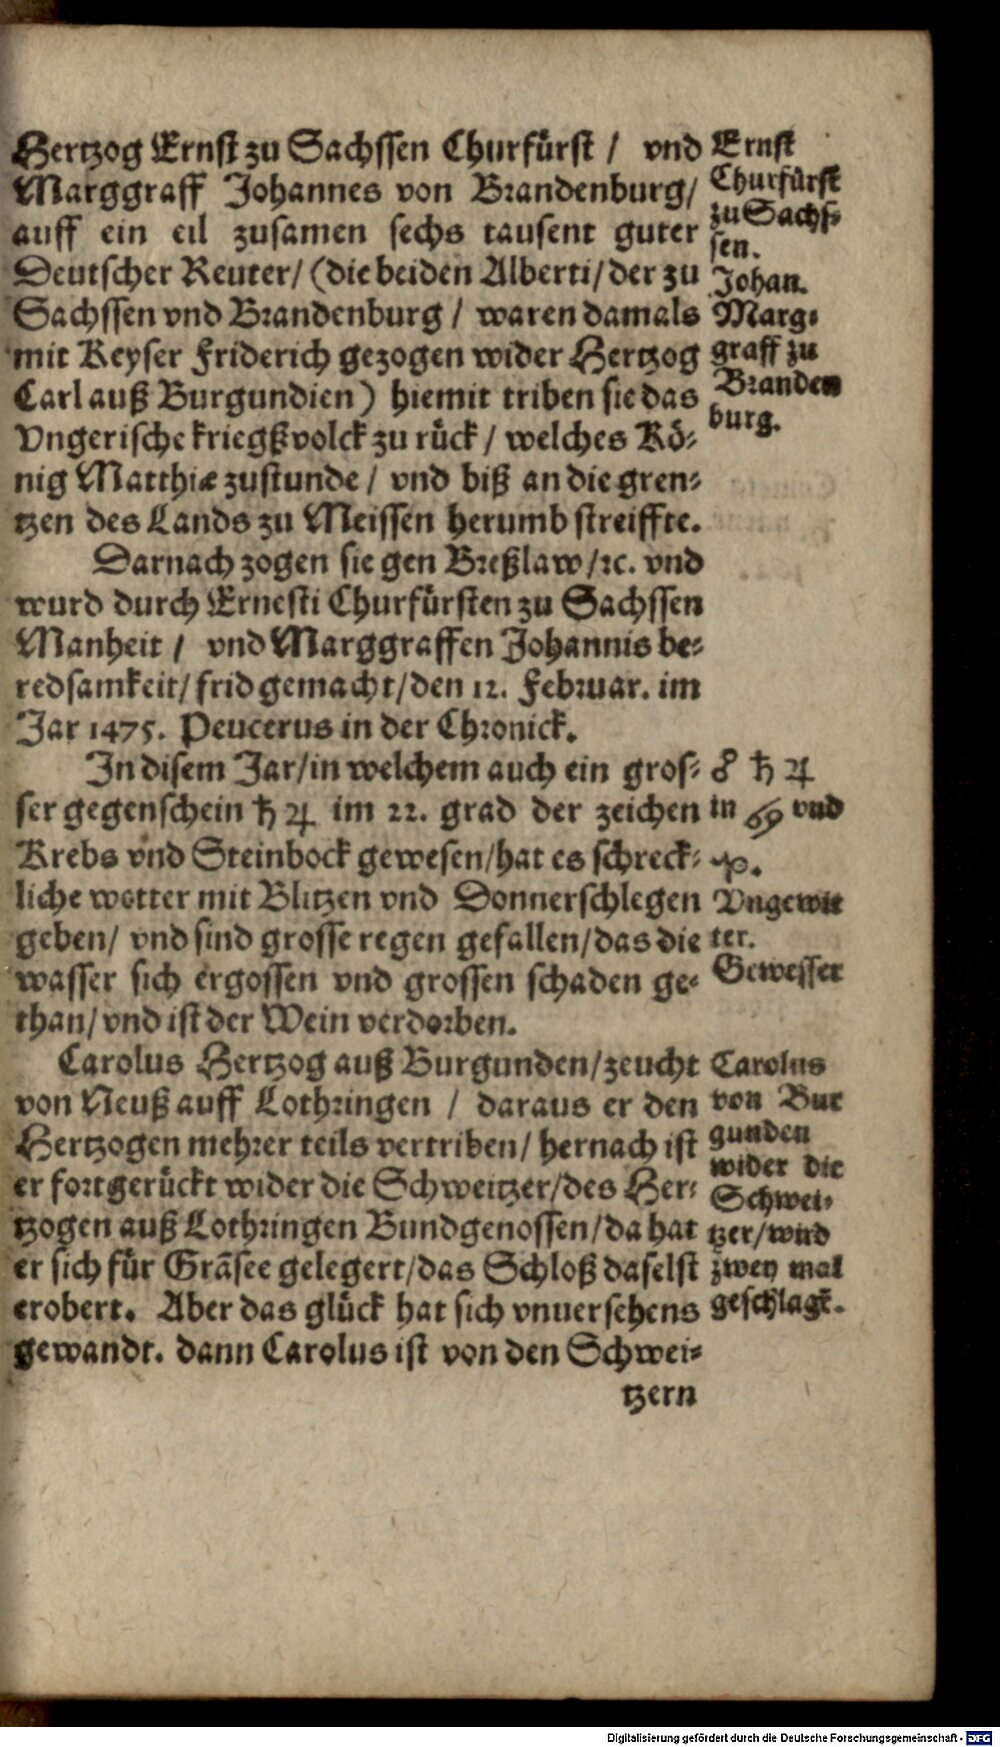 Hertzog Ernst zu Sachssen Churfürst / vnd
Marggraff Johannes von Brandenburg/
auff ein eil zusamen sechs tausent guter
Deutscher Reuter/ (die beiden Alberti/ der zu
Sachssen vnd Brandenburg / waren damals
mit Keyser Friderich gezogen wider Hertzog
Carl auß Burgundien) hiemit triben sie das
Vngerische kriegßvolck zu rück / welches Kö-
nig Matthiæ zustunde / vnd biß an die gren-
tzen des Lands zu Meissen herumb streiffte.
Darnach zogen sie gen Breßlaw/ ꝛc. vnd
wurd durch Ernesti Churfürsten zu Sachssen
Manheit / vnd Marggraffen Johannis be-
redsamkeit/ frid gemacht/ den 12. Februar. im
Jar 1475. Peucerus in der Chronick.
In disem Jar/ in welchem auch ein gros-
ser gegenschein ♄ ♃ im 22. grad der zeichen
Krebs vnd Steinbock gewesen/ hat es schreck-
liche wetter mit Blitzen vnd Donnerschlegen
geben/ vnd sind grosse regen gefallen/ das die
wasser sich ergossen vnd grossen schaden ge-
than/ vnd ist der Wein verdorben.
Carolus Hertzog auß Burgunden/ zeucht
von Neuß auff Lothringen / daraus er den
Hertzogen mehrer teils vertriben/ hernach ist
er fortgerückt wider die Schweitzer/ des Her-
tzogen auß Lothringen Bundgenossen/ da hat
er sich für Grãsee gelegert/ das Schloß daselst
erobert. Aber das glück hat sich vnuersehens
gewandt. dann Carolus ist von den Schwei-
tzern
Ernst
Churfürst
zu Sachs-
sen.
Johan.
Marg-
graff zu
Branden
burg.
☍ ♄ ♃
in ♋ vnd
♑.
Vngewit
ter.
Gewesser
Carolus
von Bur
gunden
wider die
Schwei-
tzer/ wird
zwey mal
geschlagẽ.
Digitalisierung gefördert durch die Deutsche Forschungsgemeinschaft - DFG